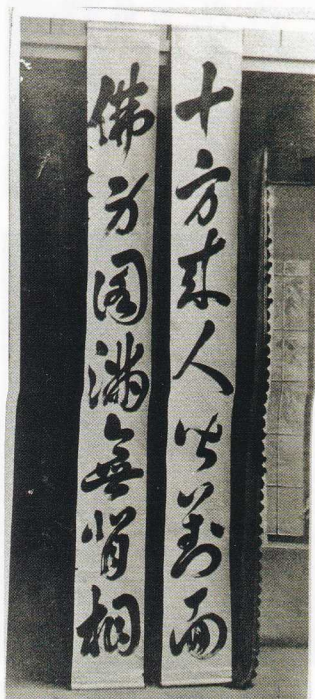 十方来人皆對面
佛身圓滿無背相